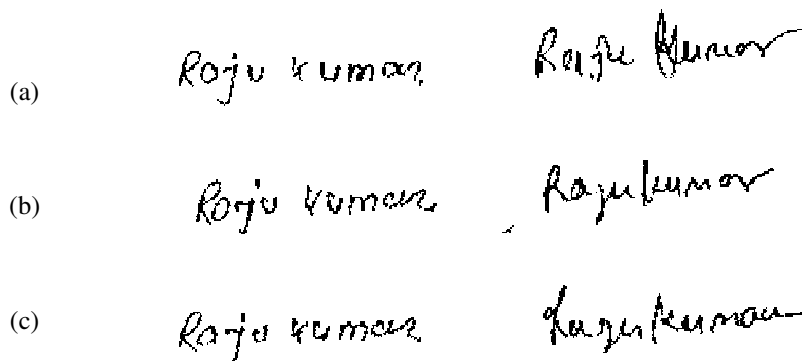 (a) Raju kumar Raju Kumar
(b) Raju kumar Rajukumar
(c) Raju kumar Rajukumar